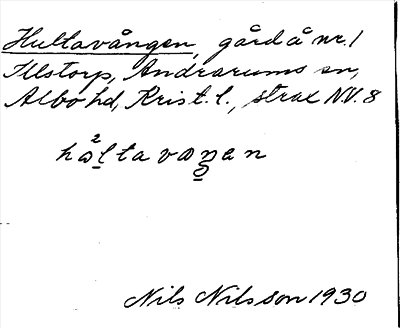 Hultavången, gård å nr. 1
Illstorp, Andrarums sn,
Albo hd, Krist. l., strax NV. 8
h①ltavaŋan
Nils Nilsson 1930